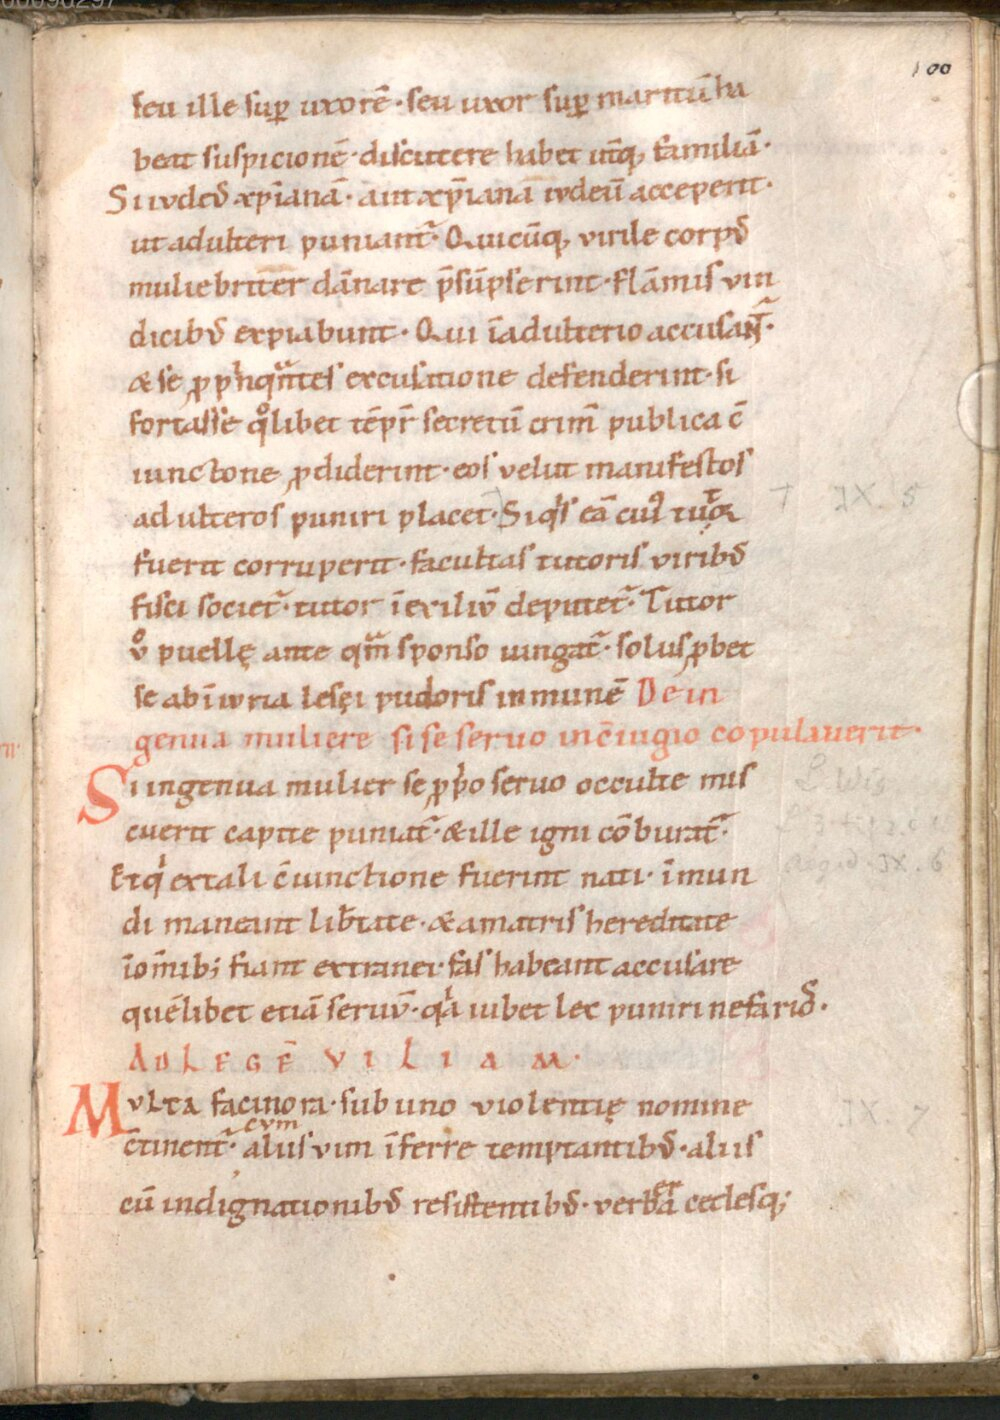 100
seu ille suꝑ uxorē· seu uxor suꝑ maritū ha
beat suspicionē· discutere habet utrq; familiā·
Si iudeꝰ xp̄ianā· aut xp̄ianā iudeū acceperit·
ut adulteri puniant᷑· Quicūq; virile corpꝰ
muliebriter dānare p̄sūpserint· flāmis vin
dicibꝰ expiabunt᷑· Qui ī adulterio accusant᷑·
& se ꝓpinquitatis excusatione defenderint· si
fortasse qͦlibet tēpr̄ secretū crim̄ publica c̄
iunctione ꝓdiderint· eos velut manifestos
adulteros puniri placet· Si qͥs eā cuiꝰ tutor
fuerit corruperit· facultas tutoris viribꝰ
fisci societ᷑· tutor ī exiliū deputet᷑· Tutor
ṽ puellę ante qͣm sponso iungat᷑· solus ꝓbet
se ab īiuria lesęi pudoris inmunē De in
genua muliere si se servo in c̄iugio copulaverit·
Si ingenua mulier se ꝓpͥo servo occulte mis
cuerit capite puniat᷑· & ille igni cōburat᷑·
Et qͥ ex tali c̄iunctione fuerint nati· ī mun
di maneant lib̄tate· & a matris hereditate
ī om̄ib; fiant extranei· fas habeant accusare
quēlibet etiā servū· qͥa iubet lex puniri nefariꝰ·
AD LEGĒ VILIAM·
MVLTA facinora· sub uno violentię nomine
c̄tinent᷑· cum aliis vim īferre temptantibꝰ· aliis
cū indignationibꝰ resistentibꝰ· verbera cedesq;
IX. 5
IX. 6
IX. 7